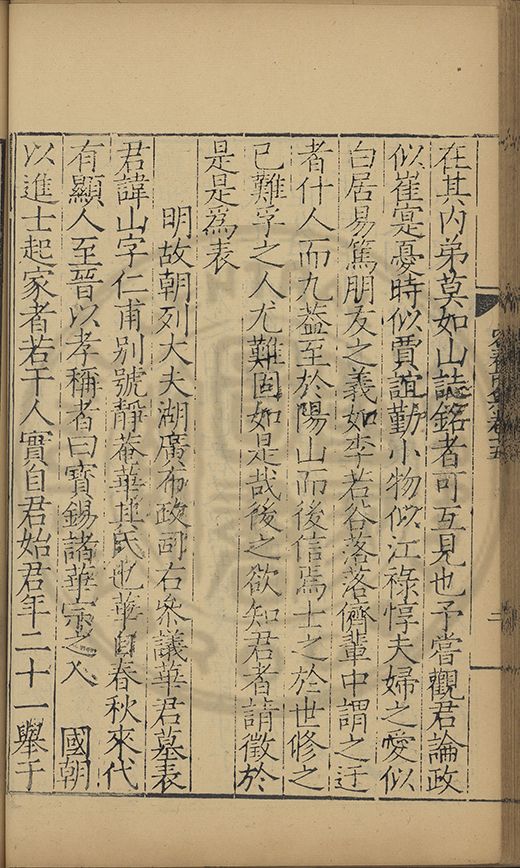 在其內弟莫如山誌銘者可互見也予嘗觀君論政
似崔寔憂時似賈誼勤小物似江祿惇夫婦之愛似
白居易篤朋友之義如李若谷落落儕輩中謂之迂
者什人而九蓋至於陽山而後信焉士之於世修之
已難孚之人尤難固如是哉後之欲知君者請徵於
是是為表
明故朝列大夫湖廣布政司右參議華君墓表
君諱山字仁甫別號靜菴華姓氏也華自春秋來代
有顯人至晉以孝稱者曰寶錫諸華宗之入 國朝
以進士起家者若干人實自君始君年二十一舉于